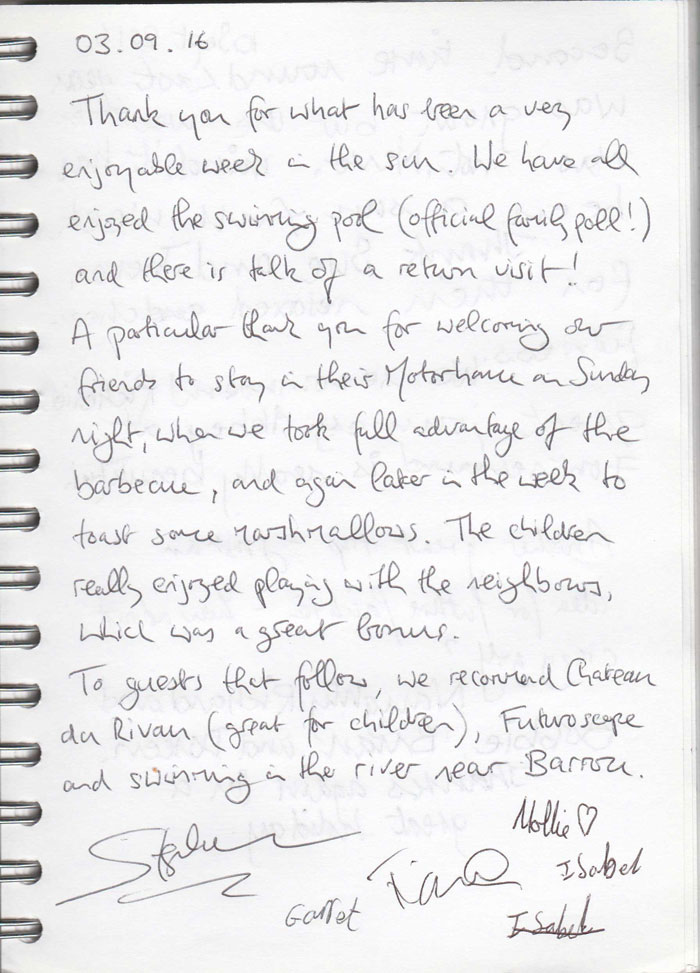 03.09.16
Thank you for what has been a very
enjoyable week in the sun. We have all
enjoyed the swimming pool (official family poll!)
and there is talk of a return visit!
A particular thank you for welcoming our
friends to stay in their Motorhome on Sunday
night, when we took full advantage of the
barbecue, and again later in the week to
toast some marshmallows. The children
really enjoyed playing with the neighbours,
which was a great bonus.
To guests that follow, we recommend Chateau
du Rivau (great for children), Futuroscope
and swimming in the river near Barrou.
Mollie ♡
Isabel
Garret
Isabel